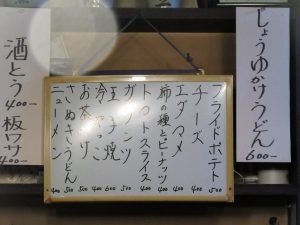 じょうゆかけうどん 600-
フライドポテト 500
チーズ 400
エダマメ 400
柿の種とピーナッツ 400
トマトスライス 400
500
玉子焼 600
冷やっこ 400
お茶漬け 500
さぬきうどん 500
ニューメン 400
板ワサ 400-
酒とう 400-